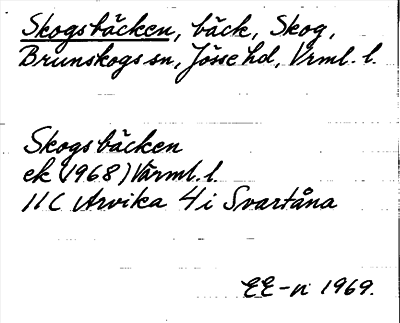 Skogsbäcken, bäck, Skog,
Brunskogs sn, Jösse hd, Vrml. l.
Skogsbäcken
ek (1968) Värml. l.
11C Arvika 4i Svartåna
EE-n 1969.